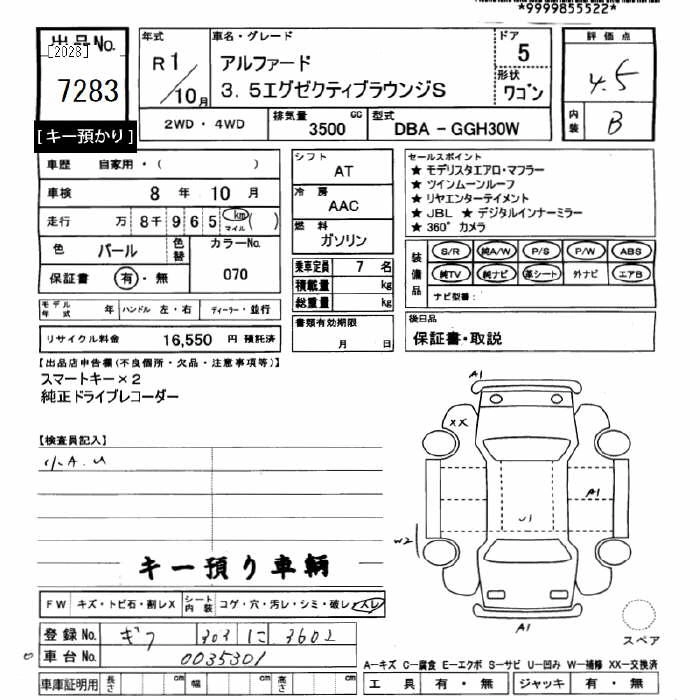 *9999855522*
出品No.
[2023]
7283
[キー預かり]
年式
R1/10月
車名・グレード
アルファード
3.5エグゼクティブラウンジS
ドア
5
形状
ワゴン
評価点
4.5
内装
B
2WD・4WD
排気量
3500
CC
型式
DBA-GGH30W
車歴 自家用・( )
車検 8 年 10 月
走行 万 8千 9 6 5 km マイル ( )
色 パール
色替
カラーNo.
070
保証書 有・無
シフト
AT
冷房
AAC
燃料
ガソリン
乗車定員 7 名
積載量 kg
総重量 kg
セールスポイント
★ モデリスタエアロ・マフラー
★ ツインムーンルーフ
★ リヤエンターテイメント
★ JBL ★ デジタルインナーミラー
★ 360° カメラ
装備品
S/R 純A/W P/S P/W ABS
純TV 純ナビ 革シート 外ナビ エアB
ナビ型番:
モデル年式 年 ハンドル 左・右 ディーラー・並行
リサイクル料金 16,550 円 預託済
書類有効期限
月 日
後日品
保証書・取説
【出品店申告欄(不良個所・欠品・注意事項等)】
スマートキー×2
純正ドライブレコーダー
【検査員記入】
小A.U
キー預り車輌
FW キズ・トビ石・割レX
シート内装 コゲ・穴・汚レ・シミ・破レ・スレ
登録No. ギフ 303 に 3602
車台No. 0035301
車庫証明用 長さ cm 幅 cm 高さ cm
A1
XX
A1
U1
W2
A1
スペア
A―キズ C―腐食 E―エクボ S―サビ U―凹み W―補修 XX―交換済
工具 有・無 ジャッキ 有・無